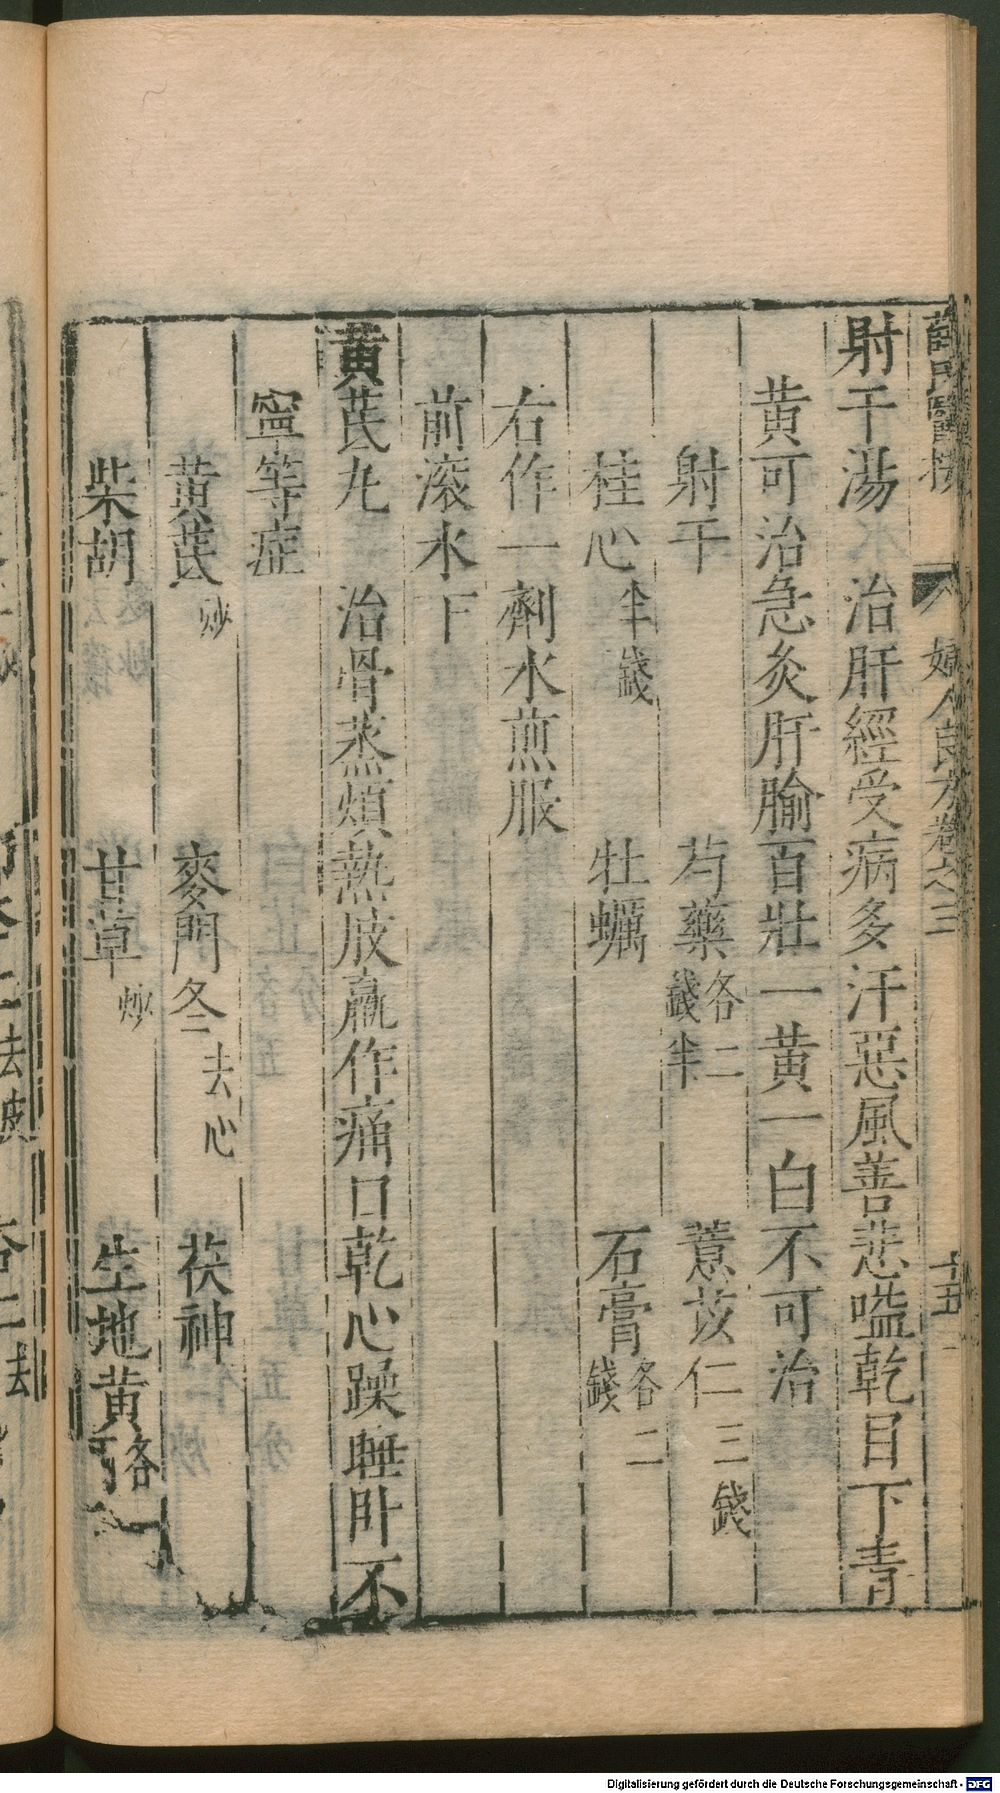 薛氏醫按 婦人良方卷之三 十五
射干湯 治肝經受病多汗惡風善悲嗌乾目下青
黄可治急灸肝腧百壯一黄一白不可治
射干 芍藥各二錢半 薏苡仁三錢
桂心半錢 牡蠣 石膏各二錢
右作一劑水煎服
前滚水下
黄茋九 治骨蒸煩熱肢羸作痛口乾心躁睡卧不
寧等症
黄茋炒 麥門冬去心 茯神
柴胡 甘草炒 生地黄各
Digitalisierung gefördert durch die Deutsche Forschungsgemeinschaft - DFG